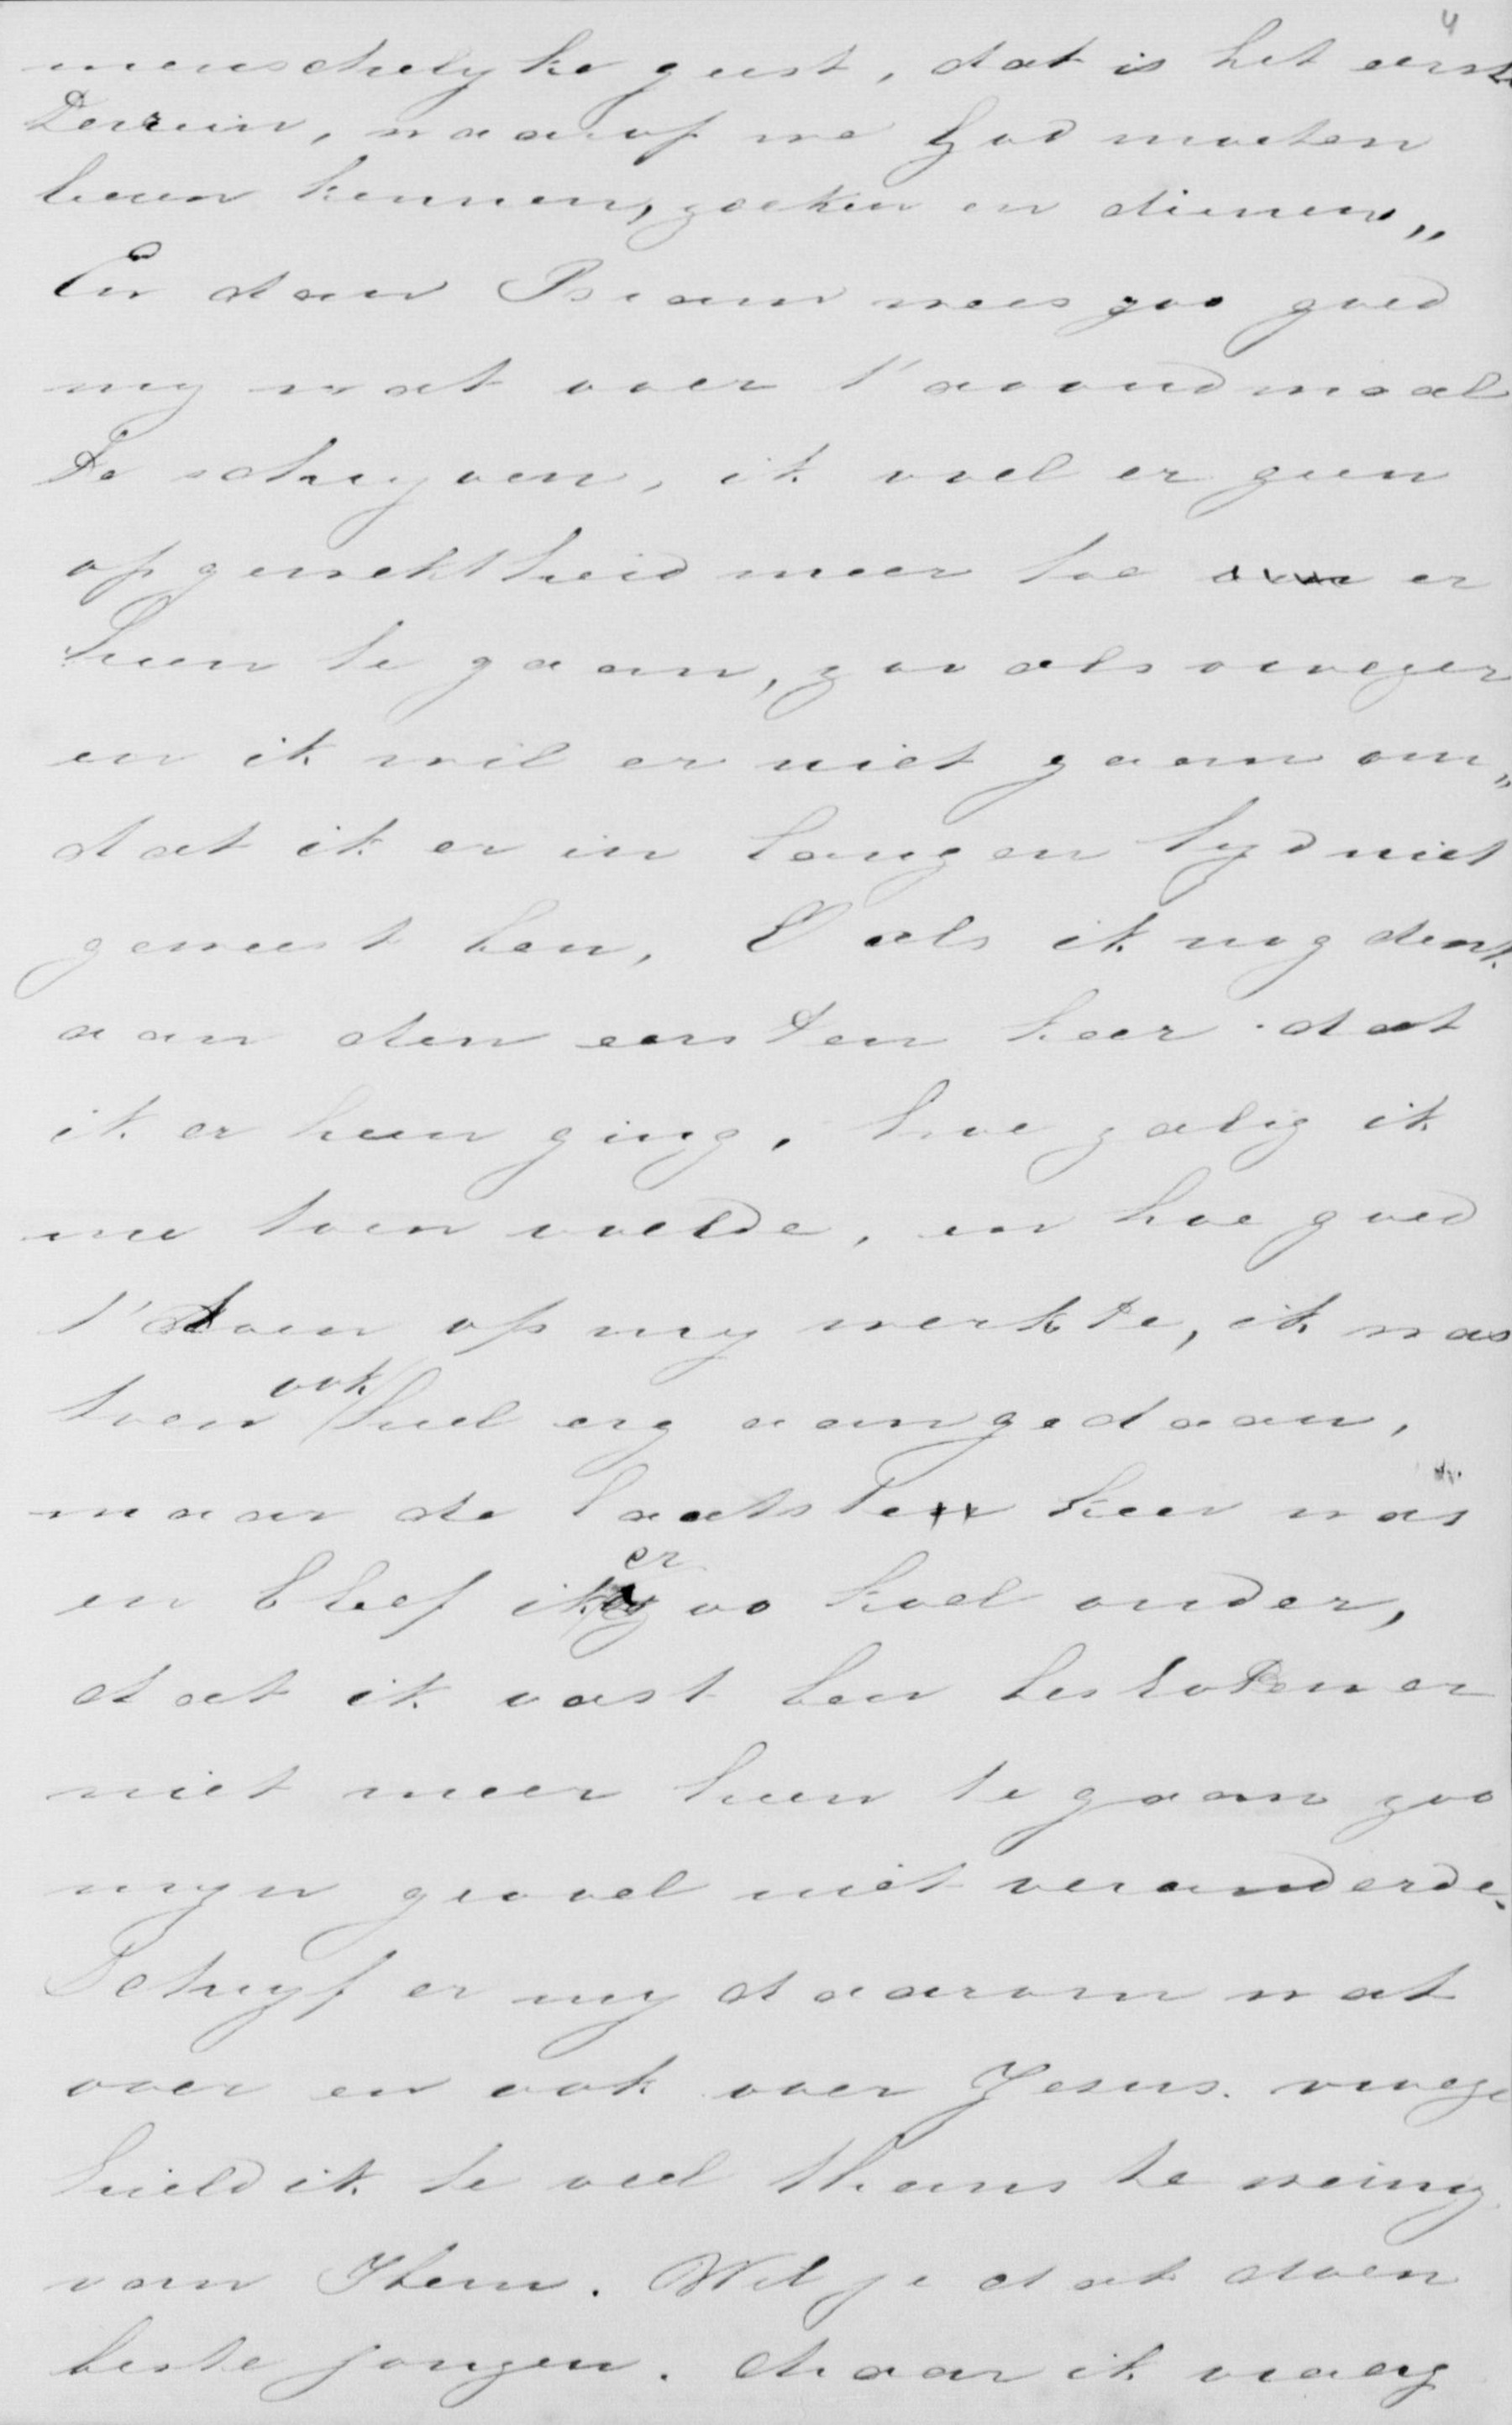 4
menschelyke geest, dat is het eerste
Terrein, waarop we God moeten
leeren kennen, zoeken en dienen„
En dan Bram wees zoo goed
my wat over 't avondmaal
te schryven, ik voel er geen
opgewektheid meer toe er
heen te gaan, zoo als vroeger
en ik wil er niet gaan om„
dat ik er in langen tyd niet
geweest ben, O als ik nog denk
aan den eersten keer dat
ik er heen ging, hoe zalig ik
me toen voelde, en hoe goed
't toen op my werkte, ik was
toen ook heel erg aangedaan,
maar de laatste keer was
en bleef ik er zoo koel onder,
dat ik vast ben besloten er
niet meer heen te gaan zoo
myn gevoel niet veranderde.
Schryf er my daarom wat
over en ook over Jezus. vroege
hield ik te veel thans te weinig
van Hem. Wil je dat doen
beste jongen. Maar ik vraag